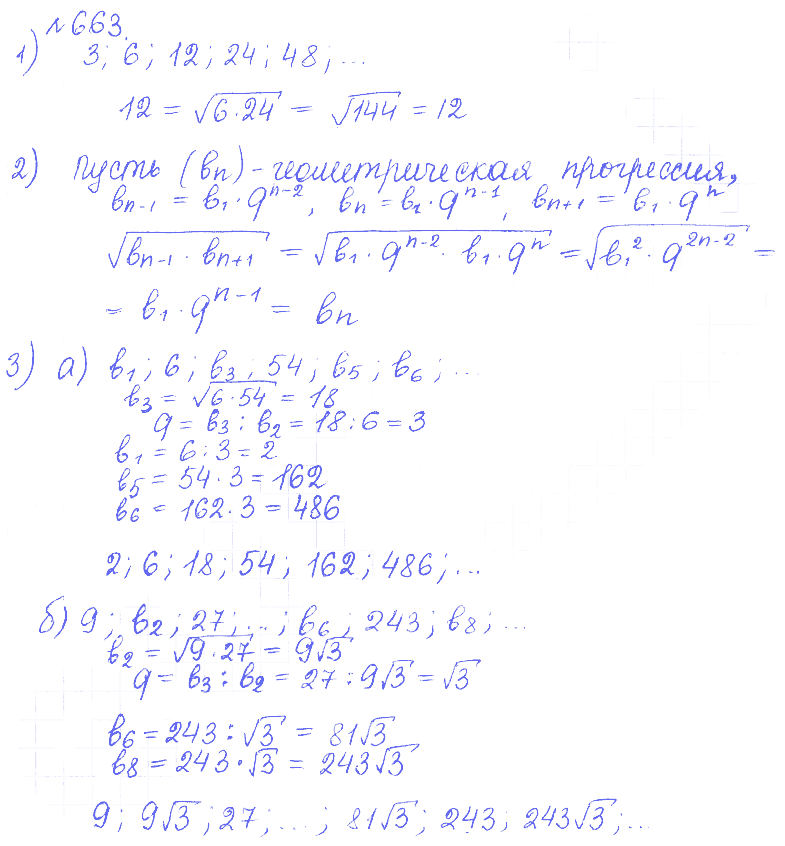 №663.
1) 3; 6; 12; 24; 48; ...
12 = √(6·24) = √144 = 12
2) Пусть (bₙ) - геометрическая прогрессия,
bₙ₋₁ = b₁·qⁿ⁻², bₙ = b₁·qⁿ⁻¹, bₙ₊₁ = b₁·qⁿ
√(bₙ₋₁·bₙ₊₁) = √(b₁·qⁿ⁻²·b₁·qⁿ) = √(b₁²·q²ⁿ⁻²) =
= b₁·qⁿ⁻¹ = bₙ
3) а) b₁; 6; b₃; 54; b₅; b₆; ...
b₃ = √(6·54) = 18
q = b₃ : b₂ = 18:6 = 3
b₁ = 6:3 = 2
b₅ = 54·3 = 162
b₆ = 162·3 = 486
2; 6; 18; 54; 162; 486; ...
б) 9; b₂; 27; ...; b₆; 243; b₈; ...
b₂ = √(9·27) = 9√3
q = b₃ : b₂ = 27 : 9√3 = √3
b₆ = 243 : √3 = 81√3
b₈ = 243·√3 = 243√3
9; 9√3; 27; ...; 81√3; 243; 243√3; ...